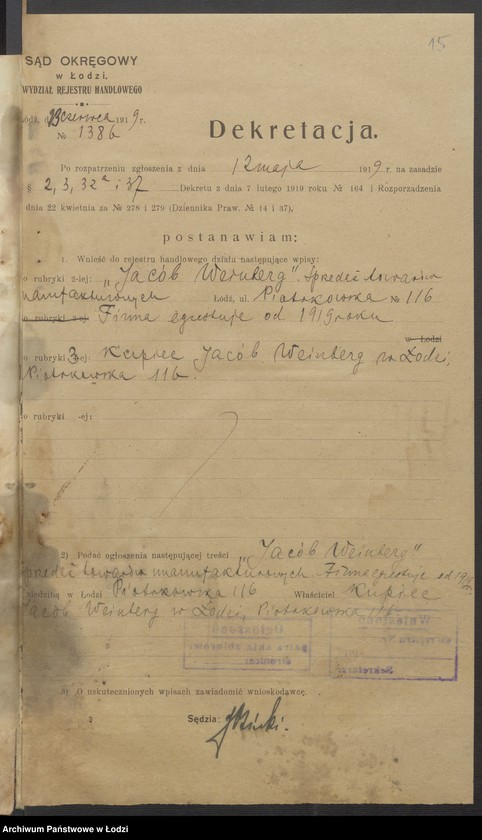 15
SĄD OKRĘGOWY
w Łodzi.
WYDZIAŁ REJESTRU HANDLOWEGO
Łódź, d. 13 czerwca 1919 r.
№ 1386
Dekretacja.
Po rozpatrzeniu zgłoszenia z dnia 12 maja 1919 r. na zasadzie
§ 2, 3, 32a i 37 Dekretu z dnia 7 lutego 1919 roku № 164 i Rozporządzenia
dnia 22 kwietnia za № 278 i 279 (Dziennika Praw. № 14 i 37),
postanawiam:
1. Wnieść do rejestru handlowego działu następujące wpisy:
o rubryki 2-iej: „Jacób Weinberg". Sprzedaż towarów
manufakturowych Łódź, ul. Piotrkowska № 116
o rubryki 2-ej Firma egzystuje od 1919 roku
w Łodzi
o rubryki 3-ej: Kupiec Jacób Weinberg w Łodzi,
Piotrkowska 116.
o rubryki -ej:
2) Podać ogłoszenia następującej treści „Jacób Weinberg"
Sprzedaż towarów manufakturowych. Firma egzystuje od 1919 r.
siedzibą w Łodzi Piotrkowska 116 Właściciel Kupiec
Jacób Weinberg w Łodzi, Piotrkowska 116.
3) O uskutecznionych wpisach zawiadomić wnioskodawcę.
Sędzia:
Archiwum Państwowe w Łodzi